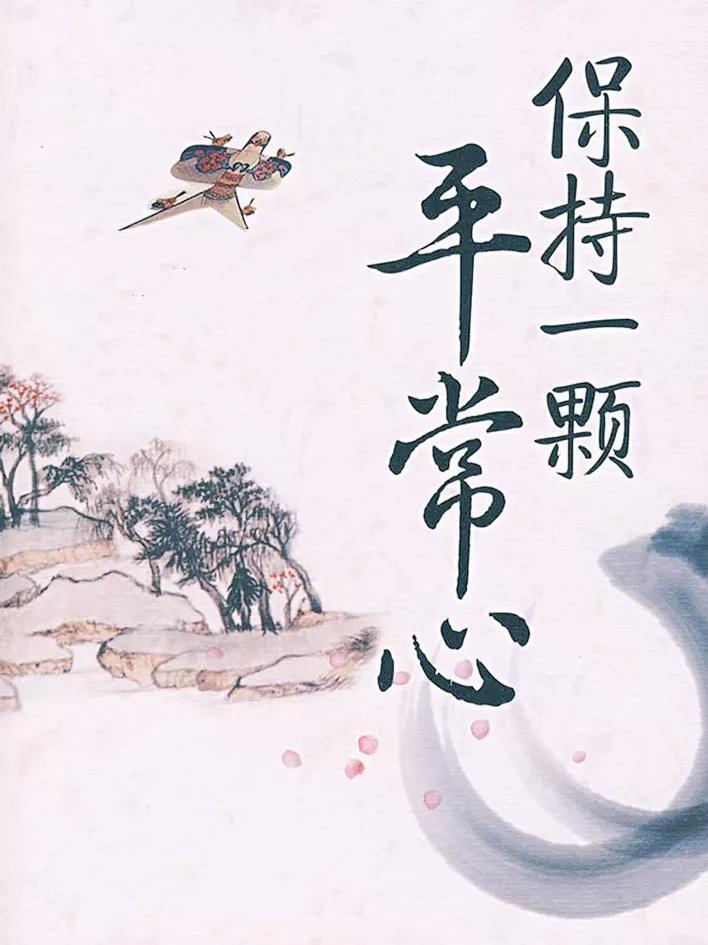 保持一颗
平常心